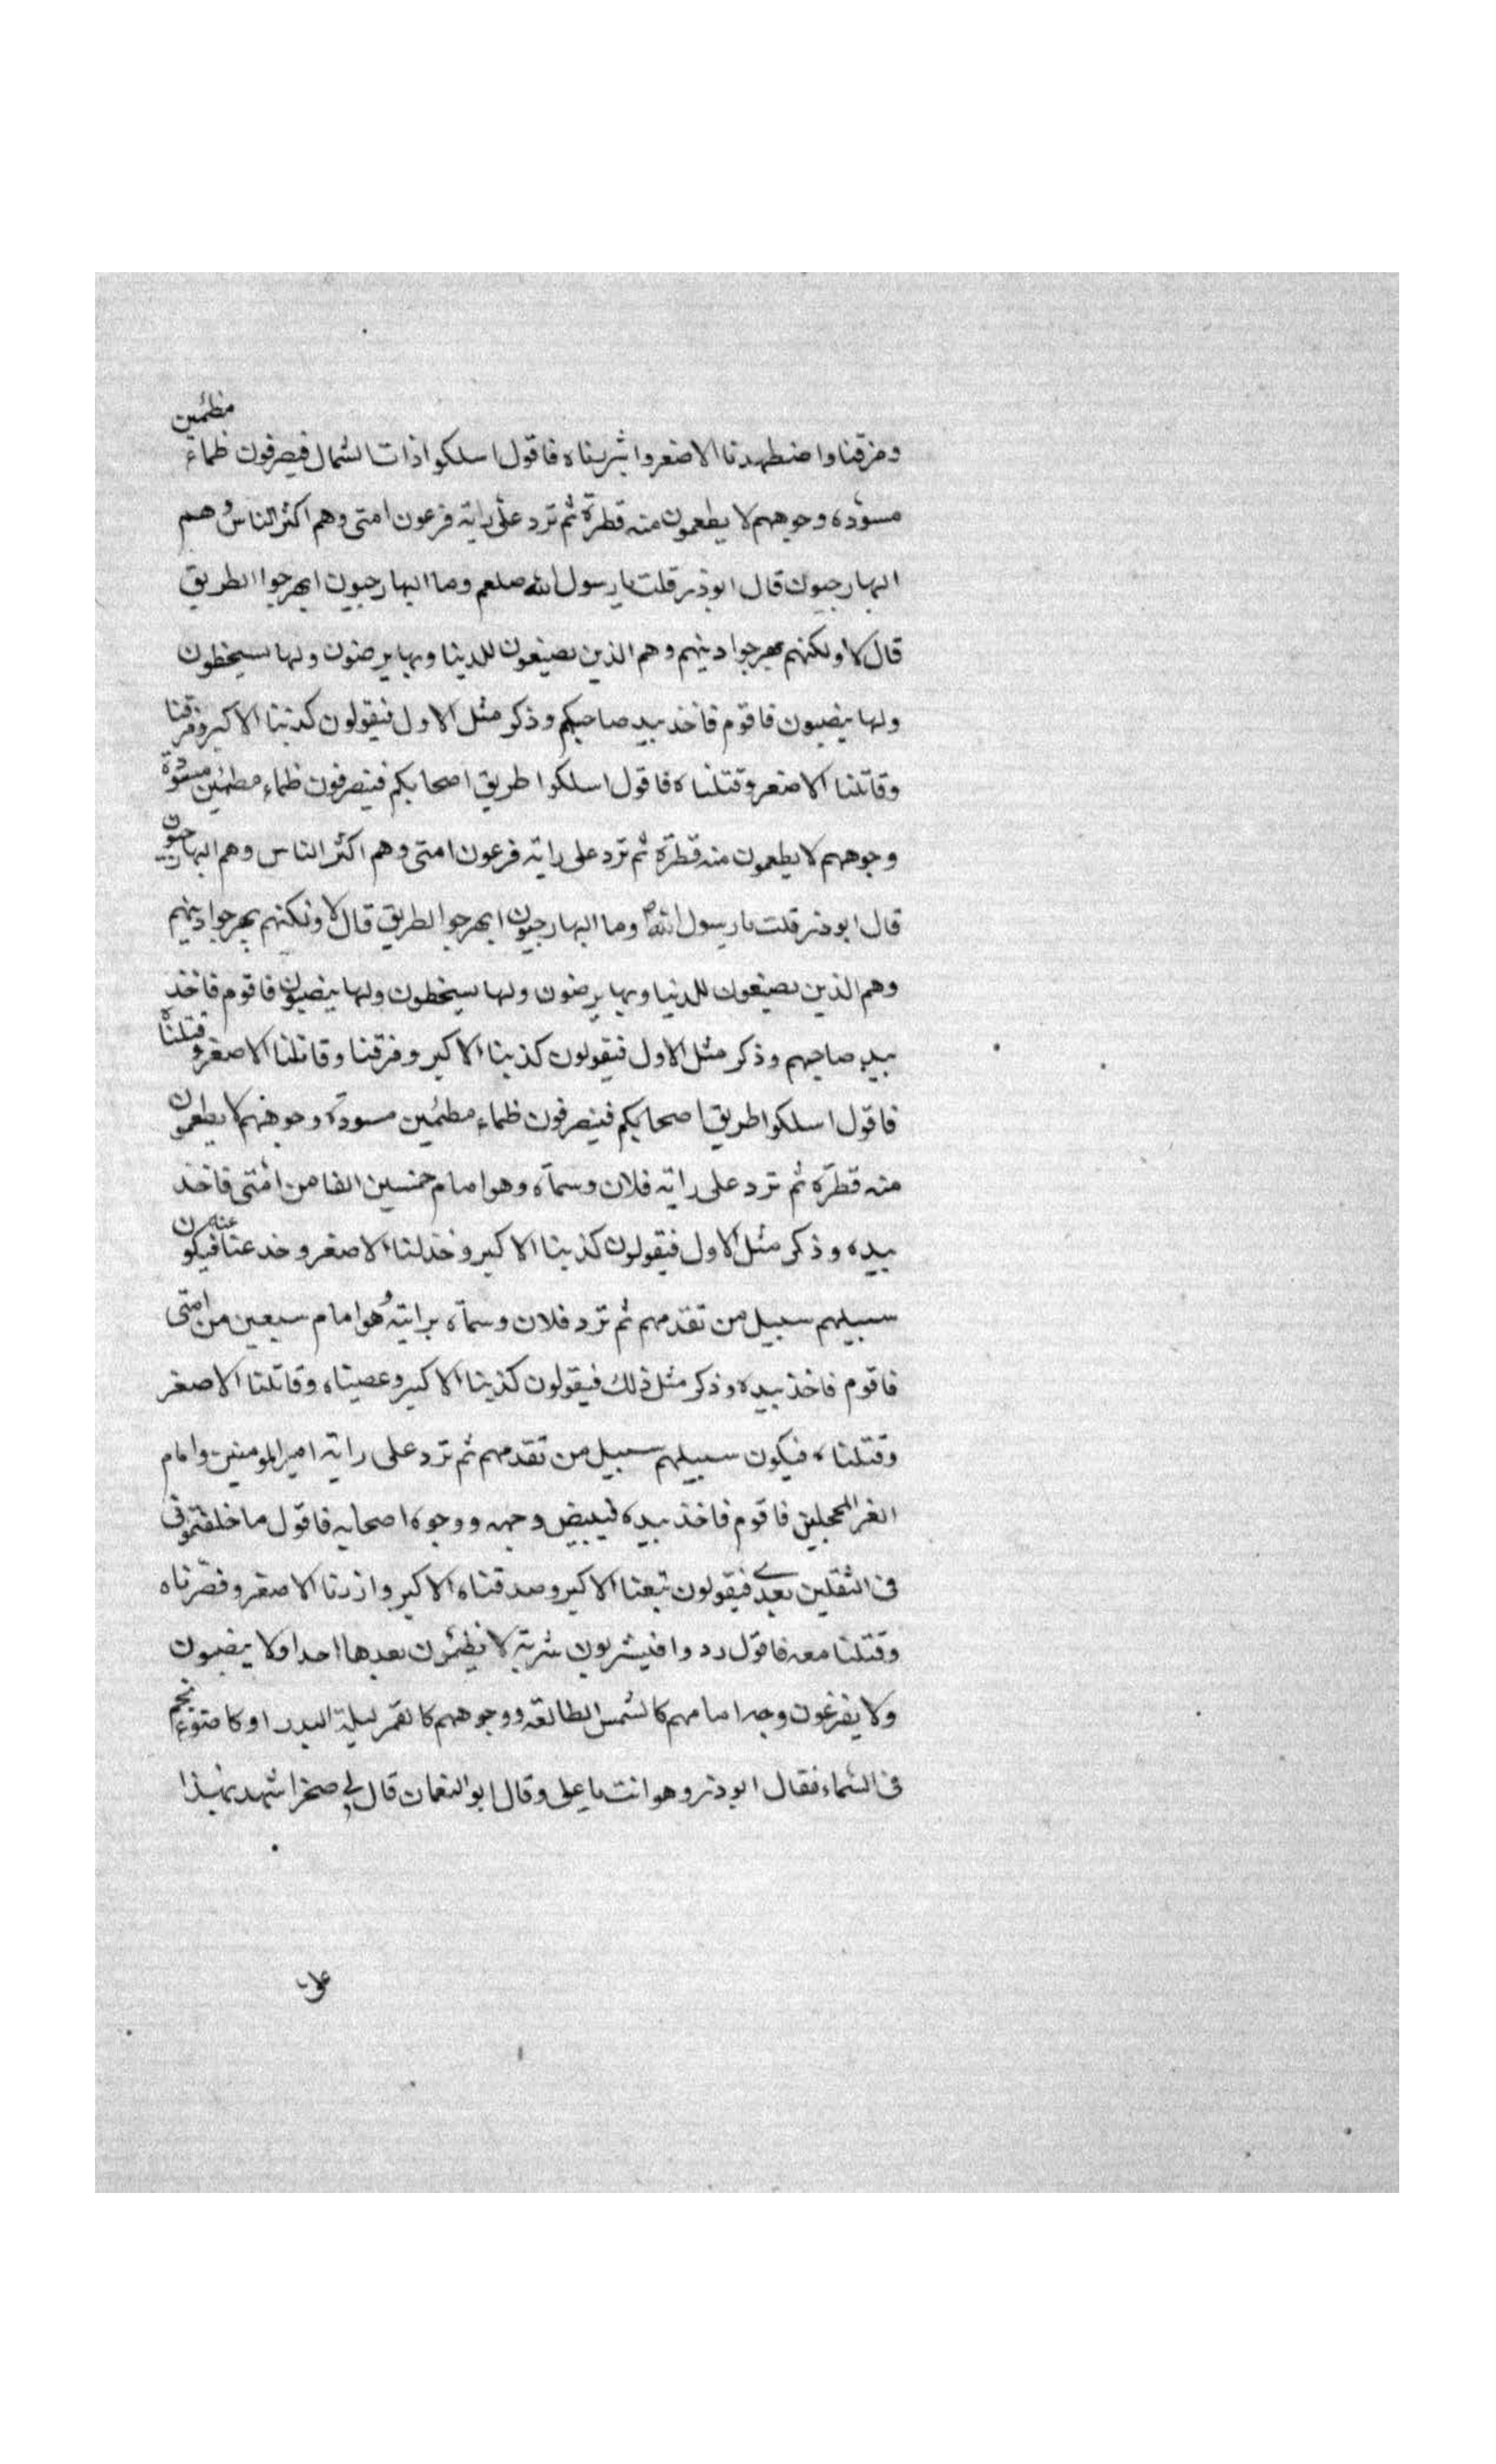 ومزقنا واضطهدنا الاصغر وابتزيناه فاقول اسلكوا ذات الشمال فيصرفون ظماء مظمئين
مسودة وجوههم لا يطعمون منه قطرة ثم ترد على راية فرعون امتى وهم اكثر الناس وهم
البهارجيون قال ابوذر قلت يا رسول الله صلعم وما البهارجيون ابهرجوا الطريق
قال لا ولكنهم بهرجوا دينهم وهم الذين يضيعون للدينا وبها يرضون ولها يسخطون
ولها ينصبون فاقوم فاخذ بيد صاحبكم وذكر مثل الاول فيقولون كذبنا الاكبر ومزقنا
وقاتلنا الاصغر وقتلناه فاقول اسلكوا طريق اصحابكم فينصرفون ظماء مطمئين مسودة
وجوههم لا يطعمون منه قطرة ثم ترد على راية فرعون امتى وهم اكثر الناس وهم البهارجيون
قال ابوذر قلت يا رسول الله ص وما البهارجيون ابهرجوا الطريق قال لا ولكنهم بهرجوا دينهم
وهم الذين يضيعون للدنيا وبها يرضون ولها يسخطون ولها ينصبون فاقوم فاخذ
بيد صاحبهم وذكر مثل الاول فيقولون كذبنا الاكبر وفرقنا وقاتلنا الاصغر وقتلناه
فاقول اسلكوا طريق اصحابكم فينصرفون ظماء مطمئين مسودة وجوههم لا يطعمون
منه قطرة ثم ترد على راية فلان وسماه وهو امام خمسين الفا من امتى فاخذ
بيده وذكر مثل الاول فيقولون كذبنا الاكبر وخذلنا الاصغر وخدعنا عنه فيكون
سبيلهم سبيل من تقدمهم ثم ترد فلان وسماه برايته وهو امام سبعين من امتى
فاقوم فاخذ بيده وذكر مثل ذلك فيقولون كذبنا الاكبر وعصيناه وقاتلنا الاصغر
وقتلناه فيكون سبيلهم سبيل من تقدمهم ثم ترد على راية امير المومنين وامام
الغر المحجلين فاقوم فاخذ بيده فيبيض وجهه ووجوه اصحابه فاقول ما خلفتمونى
فى الثقلين بعدي فيقولون تبعنا الاكبر وصدقناه الاكبر وازرنا الاصغر ونصرناه
وقتلنا معه فاقول ردوا فيشربون شربة لا يظمئون بعدها احدا ولا ينصبون
ولا يفزعون وجه امامهم كالشمس الطالعه ووجوههم كالقمر ليلة البدر او كاضوء نجم
فى السماء فقال ابوذر وهو انت يا على وقال ابو النعمان قال لى صخر اشهد بهذا